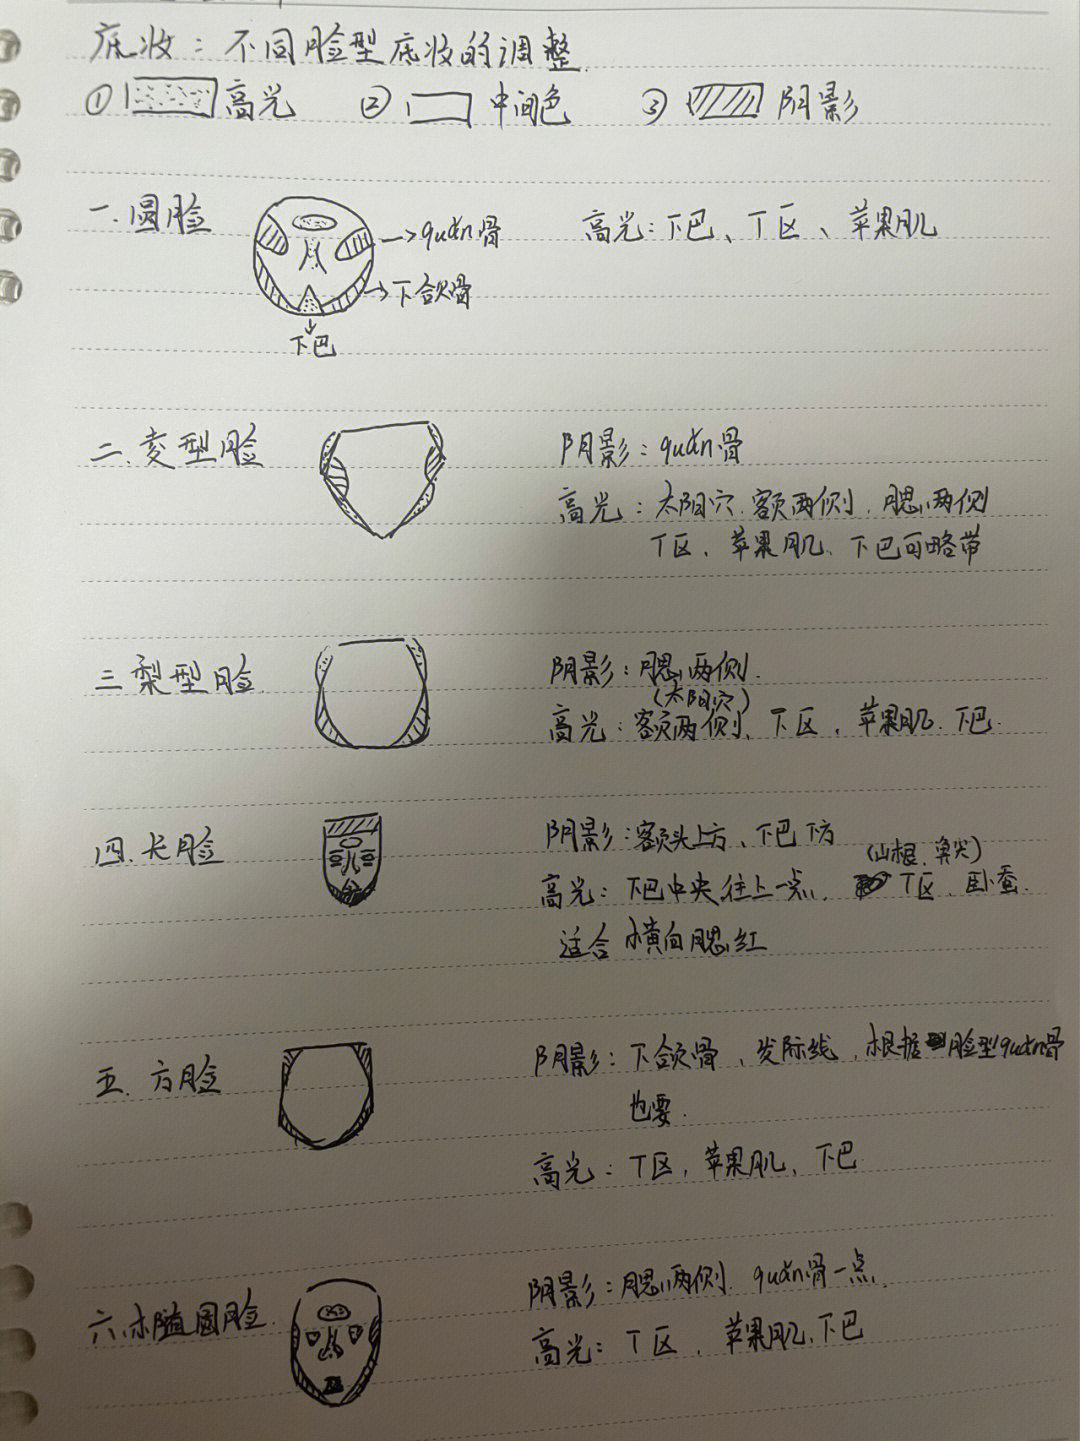 底妆：不同脸型底妆的调整.
① 高光 ② 中间色 ③ 阴影
一.圆脸 高光：下巴、T区、苹果肌
→quán骨
→下颌骨
下巴
二.菱型脸 阴影：quán骨
高光：太阳穴.额两侧.腮两侧
T区、苹果肌、下巴可略带
三.梨型脸 阴影：腮两侧.
(太阳穴)
高光：额两侧、T区、苹果肌.下巴.
四.长脸 阴影：额头上方、下巴下方
(山根、鼻尖)
高光：下巴中央往上一点、T区、卧蚕.
适合横向腮红
五.方脸 阴影：下颌骨、发际线、根据脸型quán骨
也要.
高光：T区，苹果肌、下巴
六.椭圆脸. 阴影：腮两侧.quán骨一点.
高光：T区，苹果肌.下巴